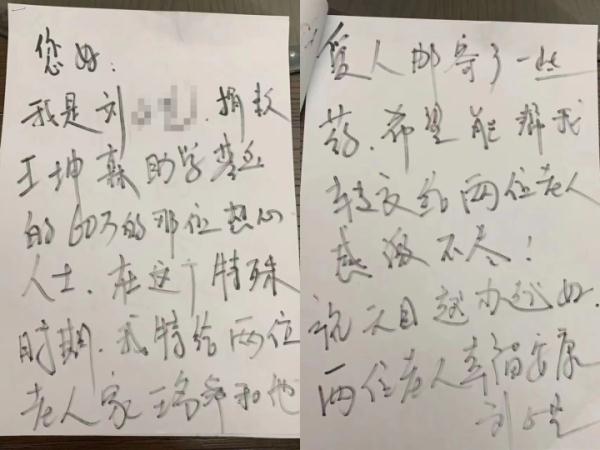 您好:
我是刘 捐款
王坤森助学基金
的60万的那位热心
人士,在这个特殊
时期,我特给两位
老人家王 和他
爱人邮寄了一些
药,希望能帮我
转交给两位老人
感激不尽!
祝 目越办越好,
两位老人幸福安康
刘